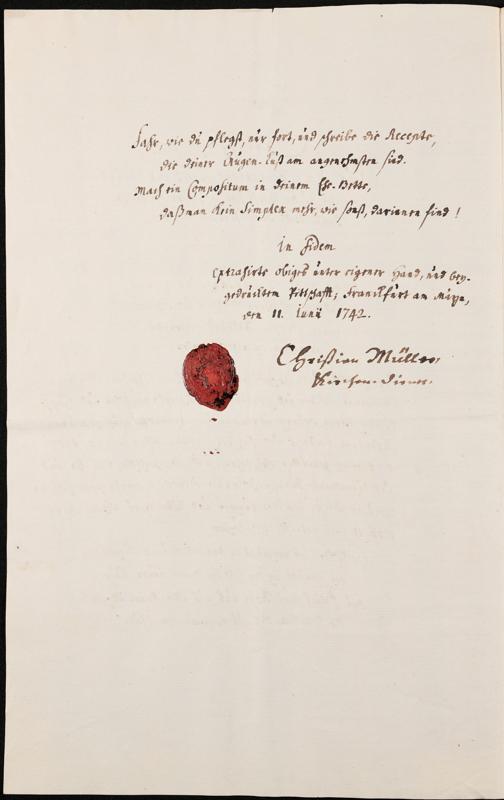 Fahr, wie du pflegst, nur fort, und schreibe die Recepte,
die deiner Augen-Lust am angenehmsten sind.
Mach ein Compositum in deinem Ehe-Bette,
daß man kein Simplex mehr, wie sonst, darinnen find!
in Fidem
Extrahirte obiges unter eigener Hand, und bey-
gedrucktem Pettschafft; Franckfurt am Mayn,
den 11. Iunii 1742.
Christian Müller,
Kirchen-Diener.